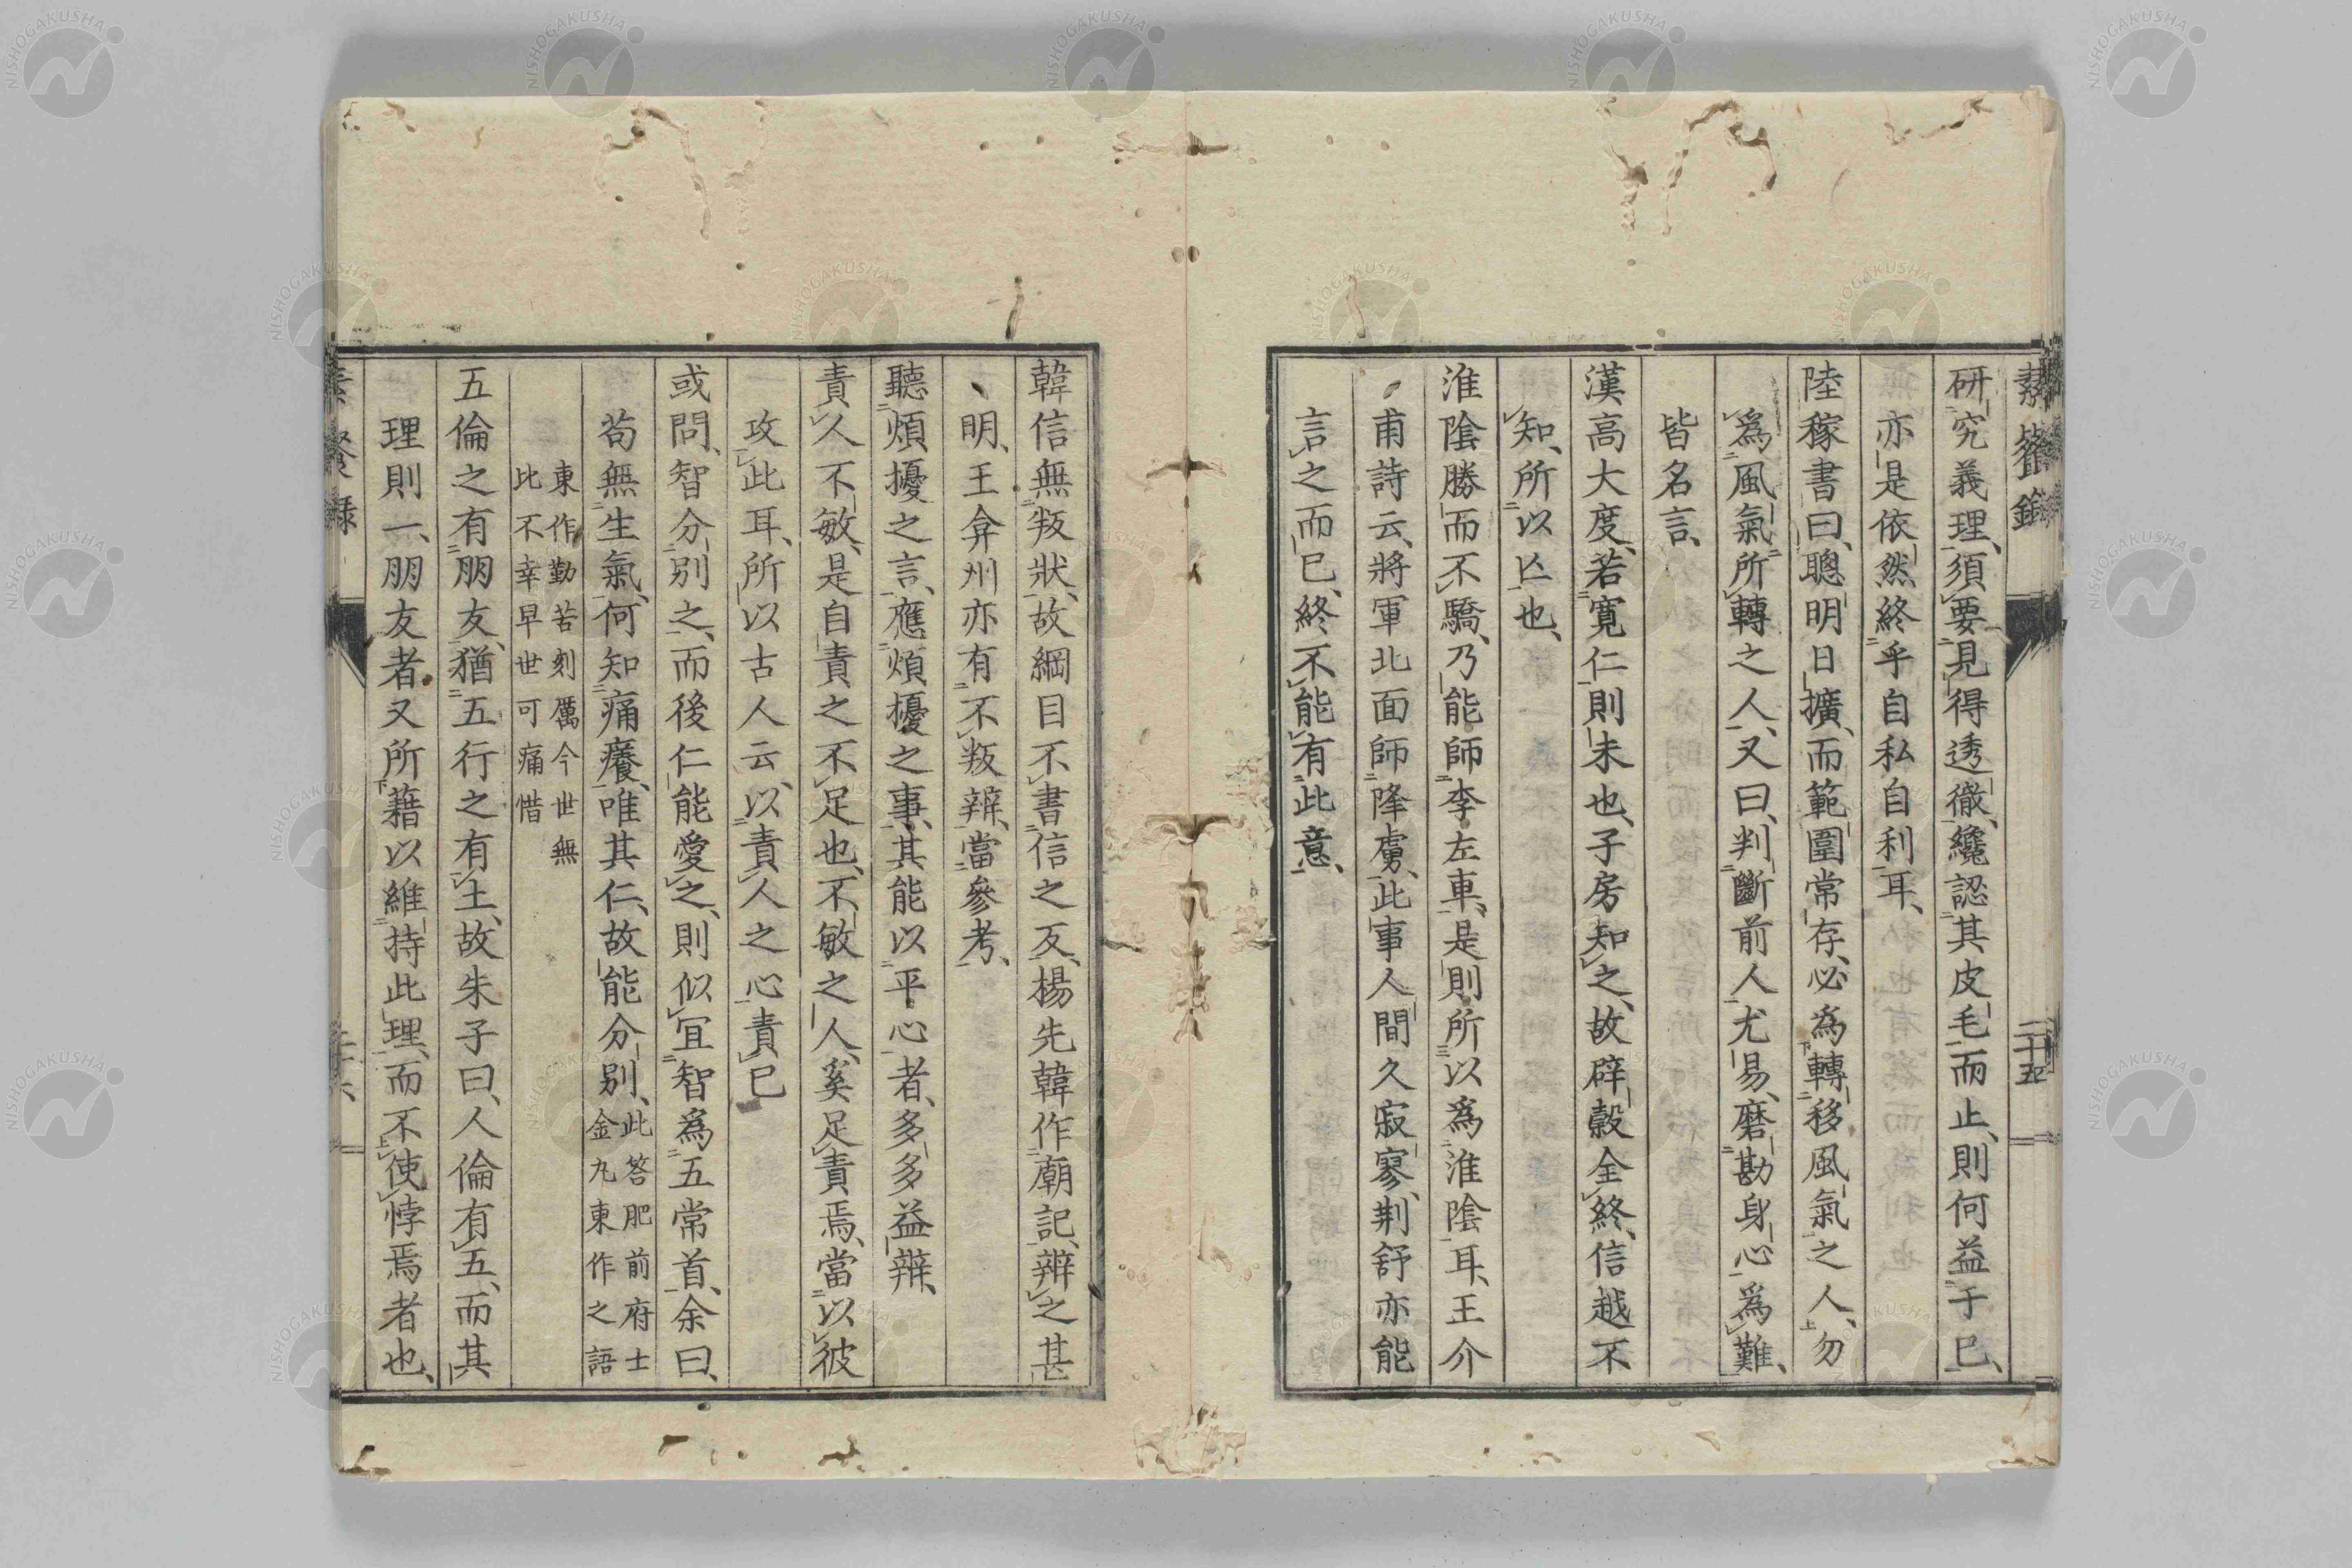 研究義理、須要見得透徹、纔認其皮毛而止、則何益于己、
亦是依然終乎自私自利耳、
陸稼書曰、聰明日擴、而範圍常存、必為轉移風氣之人、勿
為風氣所轉之人、又曰、判斷前人尤易、磨勘身心為難、
皆名言、
漢高大度、若寬仁則未也、子房知之、故辟穀全終、信越不
知、所以亾也、
淮陰勝而不驕、乃能師李左車、是則所以為淮陰耳、王介
甫詩云、將軍北面師降虜、此事人間久寂寥、荆舒亦能
言之而已、終不能有此意、
二十五
韓信無叛狀、故綱目不書信之反、楊先韓作廟記、辨之甚
明、王弇州亦有不叛辨、當參考、
聽煩擾之言、應煩擾之事、其能以平心者、多多益辨、
責久不敏、是自責之不足也、不敏之人、奚足責焉、當以彼
攻此耳、所以古人云、以責人之心責己
或問、智分別之、而後仁能愛之、則似宜智為五常首、余曰、
苟無生氣、何知痛癢、唯其仁、故能分別、此答肥前府士
金九東作之語
東作勤苦刻厲今世無
比不幸早世可痛惜
五倫之有朋友、猶五行之有土、故朱子曰、人倫有五、而其
理則一、朋友者又所藉以維持此理、而不使悖焉者也、
NISHOGAKUSHA